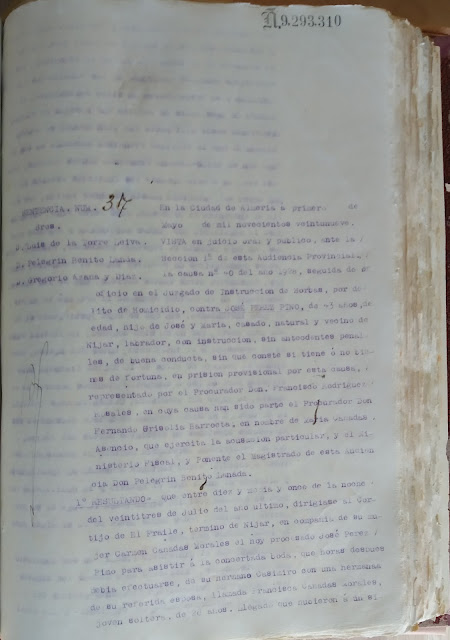 Ñ.9.293.310
SENTENCIA. NUM. 37
En la Ciudad de Almería a primero de
Sres.
Mayo de mil novecientos veintinueve.
D. Luis de la Torre Leiva.
VISTA en juicio oral y público, ante la
D. Pelegrin Benito Landa.
Sección 1ª de esta Audiencia Provincial,
D. Gregorio Azaña y Diaz.
la causa nº 40 del año 1928, seguida de
oficio en el Juzgado de Instrucción de Sorbas, por de-
lito de Homicidio, contra JOSÉ PEREZ PINO, de 43 años, de
edad, hijo de José y María, casado, natural y vecino de
Nijar, labrador, con instrucción, sin antecedentes pena-
les, de buena conducta, sin que conste si tiene ó no bie-
nes de fortuna, en prisión provisional por esta causa,
representado por el Procurador Don Francisco Rodriguez
Rosales, en cuya causa han sido parte el Procurador Don
Fernando Briselia Barrocta, en nombre de María Cañadas
Asencio, que ejercita la acusación particular, y el Mi-
nisterio Fiscal, y Ponente el Magistrado de esta Audien-
cia Don Pelegrin Benito Landa.
1º RESULTANDO- que entre diez y media y once de la noche
del veintitres de Julio del año último, dirigiase al Cor-
tijo de El Fraile, término de Nijar, en compañía de su mu-
jer Carmen Cañadas Morales el hoy procesado José Perez
Pino para asistir á la concertada boda, que horas después
debía efectuarse, de su hermano Casimiro con una hermana
de su referida esposa, llamada Francisca Cañadas Morales,
joven soltera, de 20 años. Llegado que hubieron á dn el